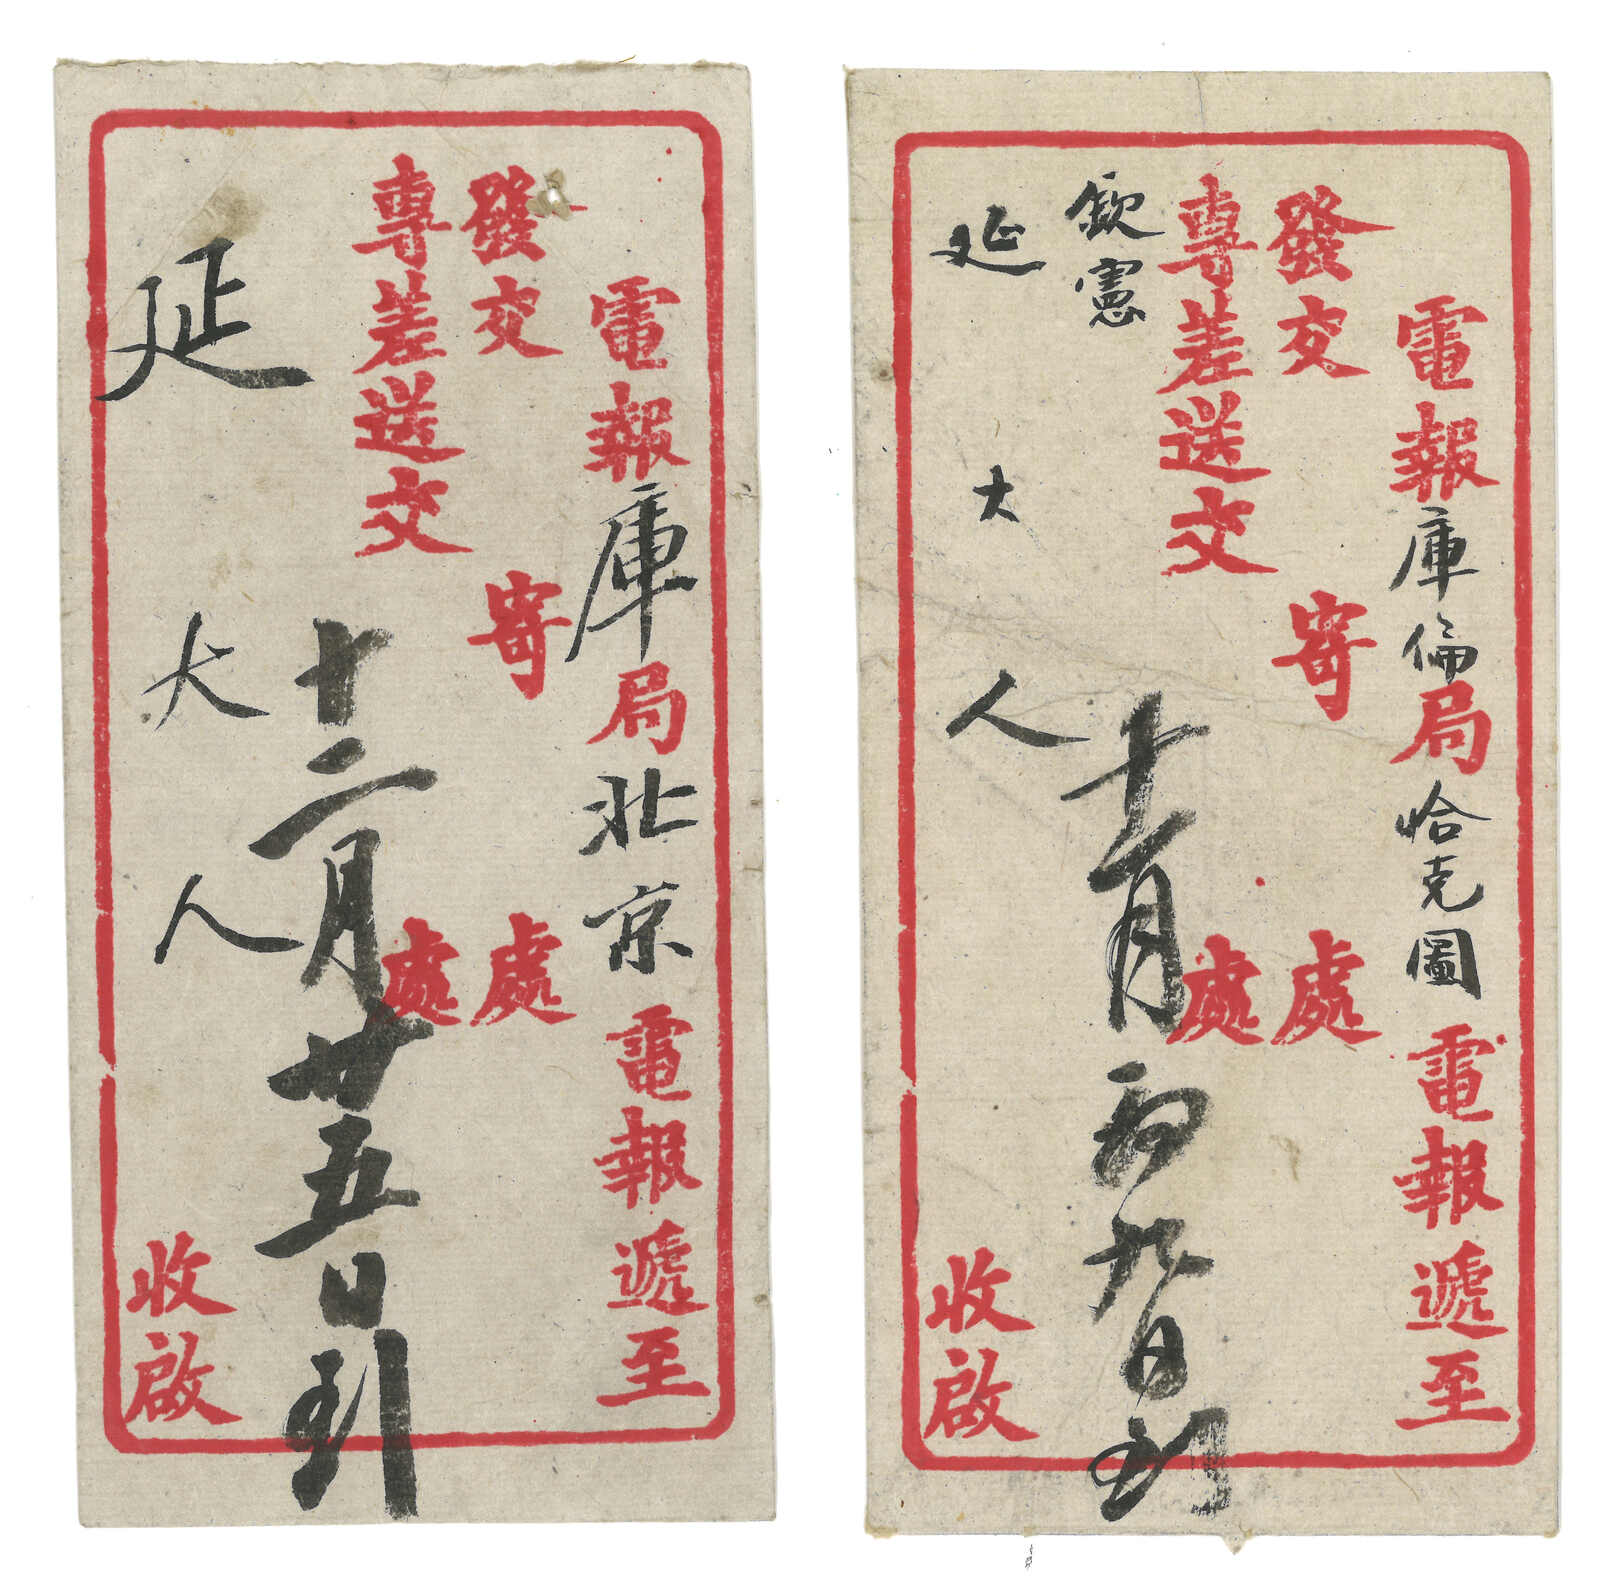 電報庫局北京電報遞至
發交寄處
專差送交處
十二月廿五日到
延大人收啟
電報庫倫局恰克圖電報遞至
發交寄處
專差送交處
欽憲
十一月九日到
延大人收啟